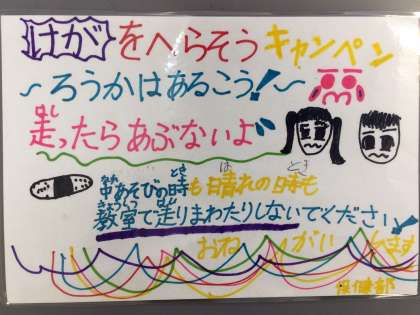 けがをへらそうキャンペン
〜ろうかはあるこう!〜
走ったらあぶないよ
中あそびの時も晴れの時も
教室で走りまわたりしないでください!
おねがいします
保健部